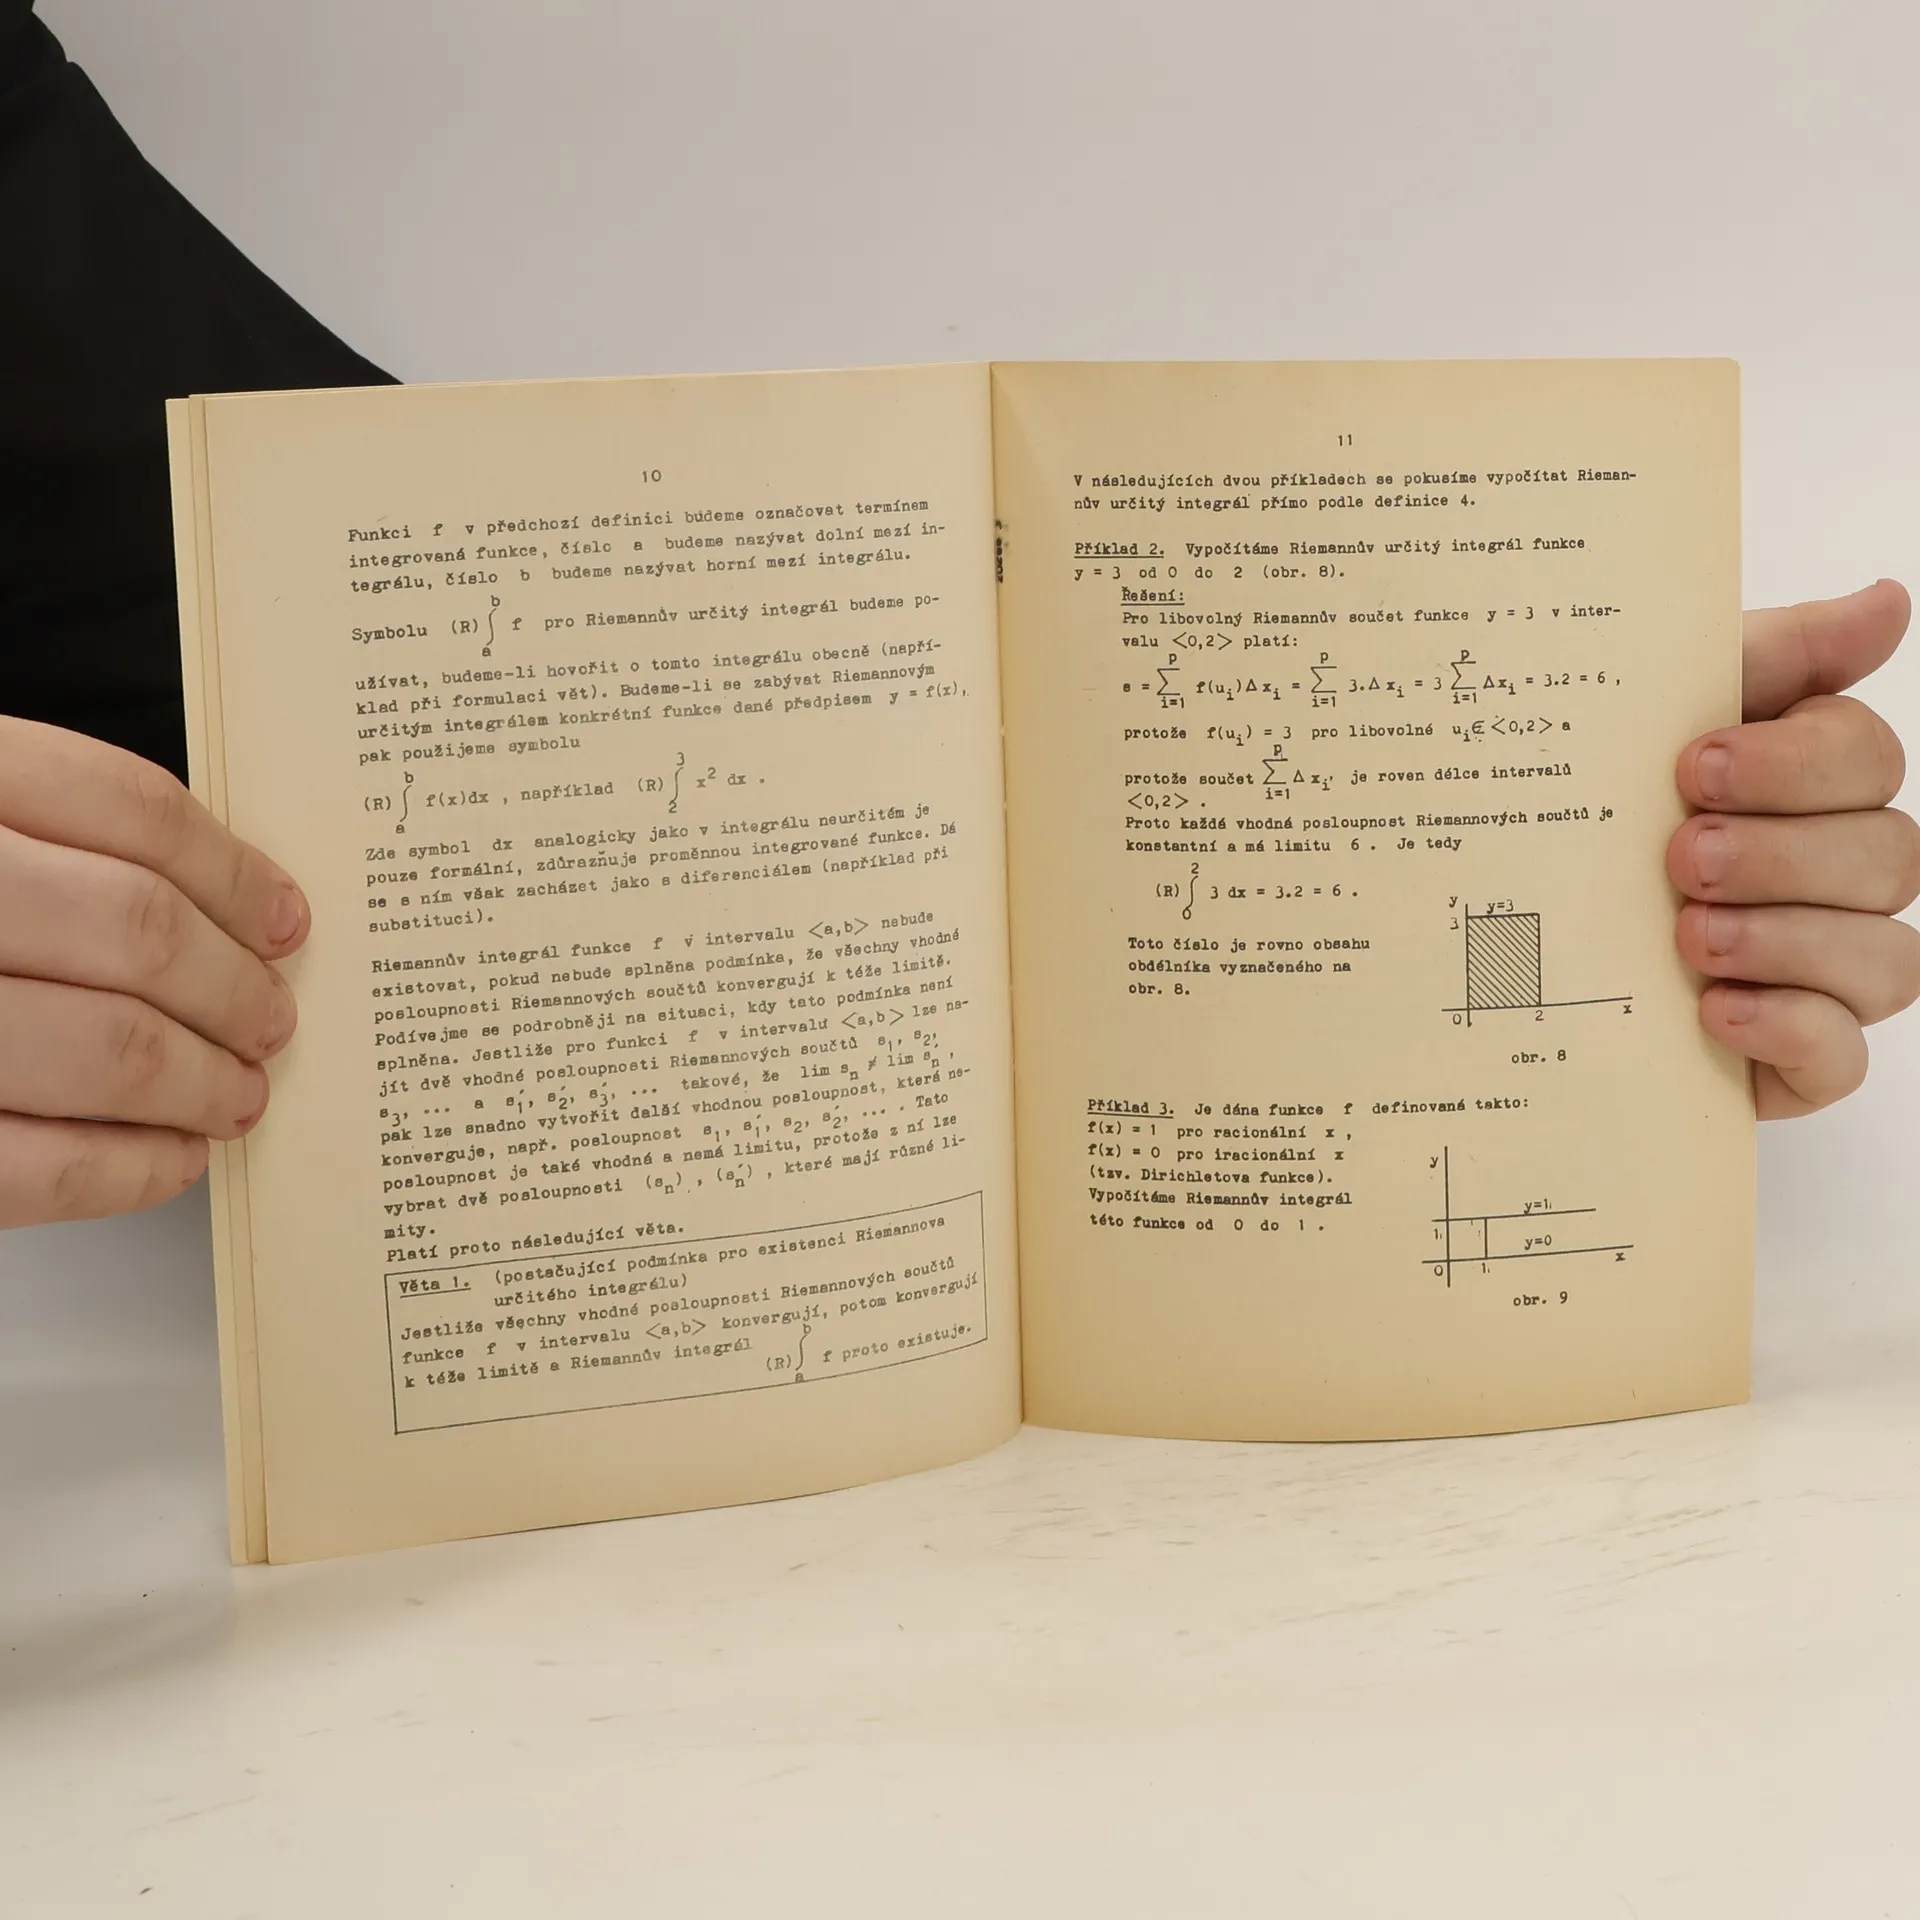 10
Funkci f v předchozí definici budeme označovat termínem
integrovaná funkce, číslo a budeme nazývat dolní mezí in-
tegrálu, číslo b budeme nazývat horní mezí integrálu.
Symbolu (R) ∫_a^b f pro Riemannův určitý integrál budeme po-
užívat, budeme-li hovořit o tomto integrálu obecně (napří-
klad při formulaci vět). Budeme-li se zabývat Riemannovým
určitým integrálem konkrétní funkce dané předpisem y = f(x),
pak použijeme symbolu
(R) ∫_a^b f(x)dx , například (R) ∫_2^3 x² dx .
Zde symbol dx analogicky jako v integrálu neurčitém je
pouze formální, zdůrazňuje proměnnou integrované funkce. Dá
se s ním však zacházet jako s diferenciálem (například při
substituci).
Riemannův integrál funkce f v intervalu <a,b> nebude
existovat, pokud nebude splněna podmínka, že všechny vhodné
posloupnosti Riemannových součtů konvergují k téže limitě.
Podívejme se podrobněji na situaci, kdy tato podmínka není
splněna. Jestliže pro funkci f v intervalu <a,b> lze na-
jít dvě vhodné posloupnosti Riemannových součtů s₁, s₂,
s₃, ... a s₁′, s₂′, s₃′, ... takové, že lim sₙ ≠ lim sₙ′ ,
pak lze snadno vytvořit další vhodnou posloupnost, která ne-
konverguje, např. posloupnost s₁, s₁′, s₂, s₂′, ... . Tato
posloupnost je také vhodná a nemá limitu, protože z ní lze
vybrat dvě posloupnosti (sₙ) , (sₙ′) , které mají různé li-
mity.
Platí proto následující věta.
Věta 1. (postačující podmínka pro existenci Riemannova
určitého integrálu)
Jestliže všechny vhodné posloupnosti Riemannových součtů
funkce f v intervalu <a,b> konvergují, potom konvergují
k téže limitě a Riemannův integrál (R) ∫_a^b f proto existuje.
11
V následujících dvou příkladech se pokusíme vypočítat Rieman-
nův určitý integrál přímo podle definice 4.
Příklad 2. Vypočítáme Riemannův určitý integrál funkce
y = 3 od 0 do 2 (obr. 8).
Řešení:
Pro libovolný Riemannův součet funkce y = 3 v inter-
valu <0,2> platí:
s = ∑_{i=1}^p f(uᵢ)Δxᵢ = ∑_{i=1}^p 3.Δxᵢ = 3 ∑_{i=1}^p Δxᵢ = 3.2 = 6 ,
protože f(uᵢ) = 3 pro libovolné uᵢ∈ <0,2> a
protože součet ∑_{i=1}^p Δxᵢ, je roven délce intervalů
<0,2> .
Proto každá vhodná posloupnost Riemannových součtů je
konstantní a má limitu 6 . Je tedy
(R) ∫_0^2 3 dx = 3.2 = 6 .
Toto číslo je rovno obsahu
obdélníka vyznačeného na
obr. 8.
y
y=3
3
0
2
x
obr. 8
Příklad 3. Je dána funkce f definovaná takto:
f(x) = 1 pro racionální x ,
f(x) = 0 pro iracionální x
(tzv. Dirichletova funkce).
Vypočítáme Riemannův integrál
této funkce od 0 do 1 .
y
y=1
1
y=0
0
1
x
obr. 9